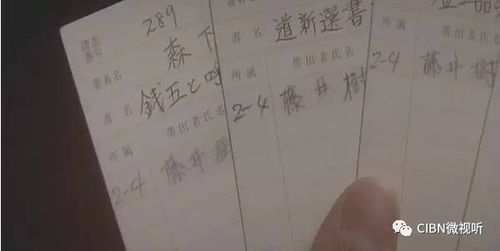 請求番号 289
著者名 森下
書名 銭五と
所属 帯出者氏名
2-4 藤井樹
書名 道新選書
所属 帯出者氏名
2-4 藤井樹
2-4 藤井樹
CIBN微视听